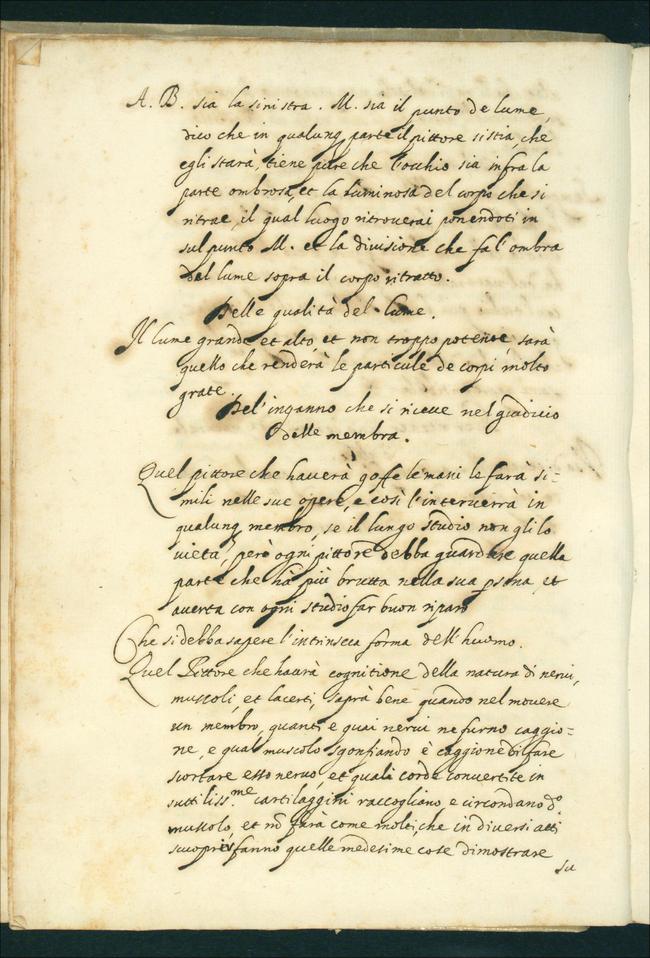 A. B. sia la sinistra. M. sia il punto de lume,
dico che in qualunq parte il pittore si stia, che
egli starà, tiene pure che l'occhio sia infra la
parte ombrosa, et la luminosa del corpo che si
ritrae, il qual luogo ritrouerai ponendoti in
sul punto M. et la diuisione che fa l'ombra
del lume sopra il corpo ritratto.
Delle qualità del lume.
Il lume grande et alto, et non troppo potente, sarà
quello che renderà le particule de corpi molto
grate.
Del'inganno che si riceue nel giudicio
delle membra.
Quel pittore che hauerà goffe le mani le farà si=
mili nelle sue opere, e così l'interuerrà in
qualunq membro, se il lungo studio non gli lo
uieta, però ogni pittore debba guardare quella
parte che hà più brutta nella sua psona, et
auerta con ogni studio far buon riparo
Che si debba sapere l'intrinseca forma dell'huomo.
Quel Pittore che haurà cognitione della natura di nerui,
muscoli, et lacerti, saprà bene quando nel mouere
un membro, quanti e quai nerui ne furno caggio=
ne, e qual muscolo sgonfiando è caggione di fare
scortare esso neruo, et quali corde conuertite in
suttiliss.me cartilaggini raccogliano, e circondano d.o
muscolo, et nõ farà come molti, che in diuersi atti
fanno quelle medesime cose dimostrare
su